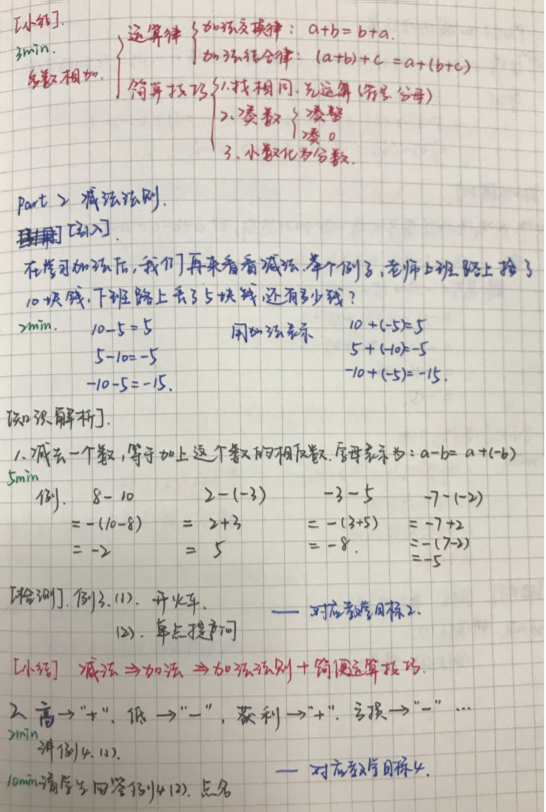 [小结].
3min.
多数相加.
运算律
加法交换律: a+b=b+a.
加法结合律: (a+b)+c=a+(b+c)
简算技巧
1.找相同.先运算(符号.分母)
2.凑数
凑整
凑0
3.小数化为分数.
Part 2 减法法则.
[引入].
在学习加法后,我们再来看看减法.举个例子,老师上班路上捡了
10块钱,下班路上丢了5块钱,还有多少钱?
2min. 10-5=5 用加法表示 10+(-5)=5
5-10=-5 5+(-10)=-5
-10-5=-15. -10+(-5)=-15.
[知识解析].
1.减去一个数,等于加上这个数的相反数.字母表示为: a-b=a+(-b)
5min
例. 8-10 2-(-3) -3-5 -7-(-2)
=-(10-8) =2+3 =-(3+5) =-7+2
=-2 =5 =-8. =-(7-2)
=-5
[检测].例3.(1). 开火车. — 对应教学目标2.
(2). 单点提问
[小结] 减法⇒加法⇒加法法则+简便运算技巧.
2.高→"+". 低→"-". 获利→"+". 亏损→"-" …
2min
讲例4.(1).
10min 请学生回答例4(2). 点名 — 对应教学目标4.